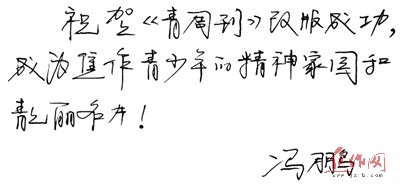 祝贺《青周刊》改版成功,
成为焦作青少年的精神家园和
靓丽名片!
冯鹏
焦作网